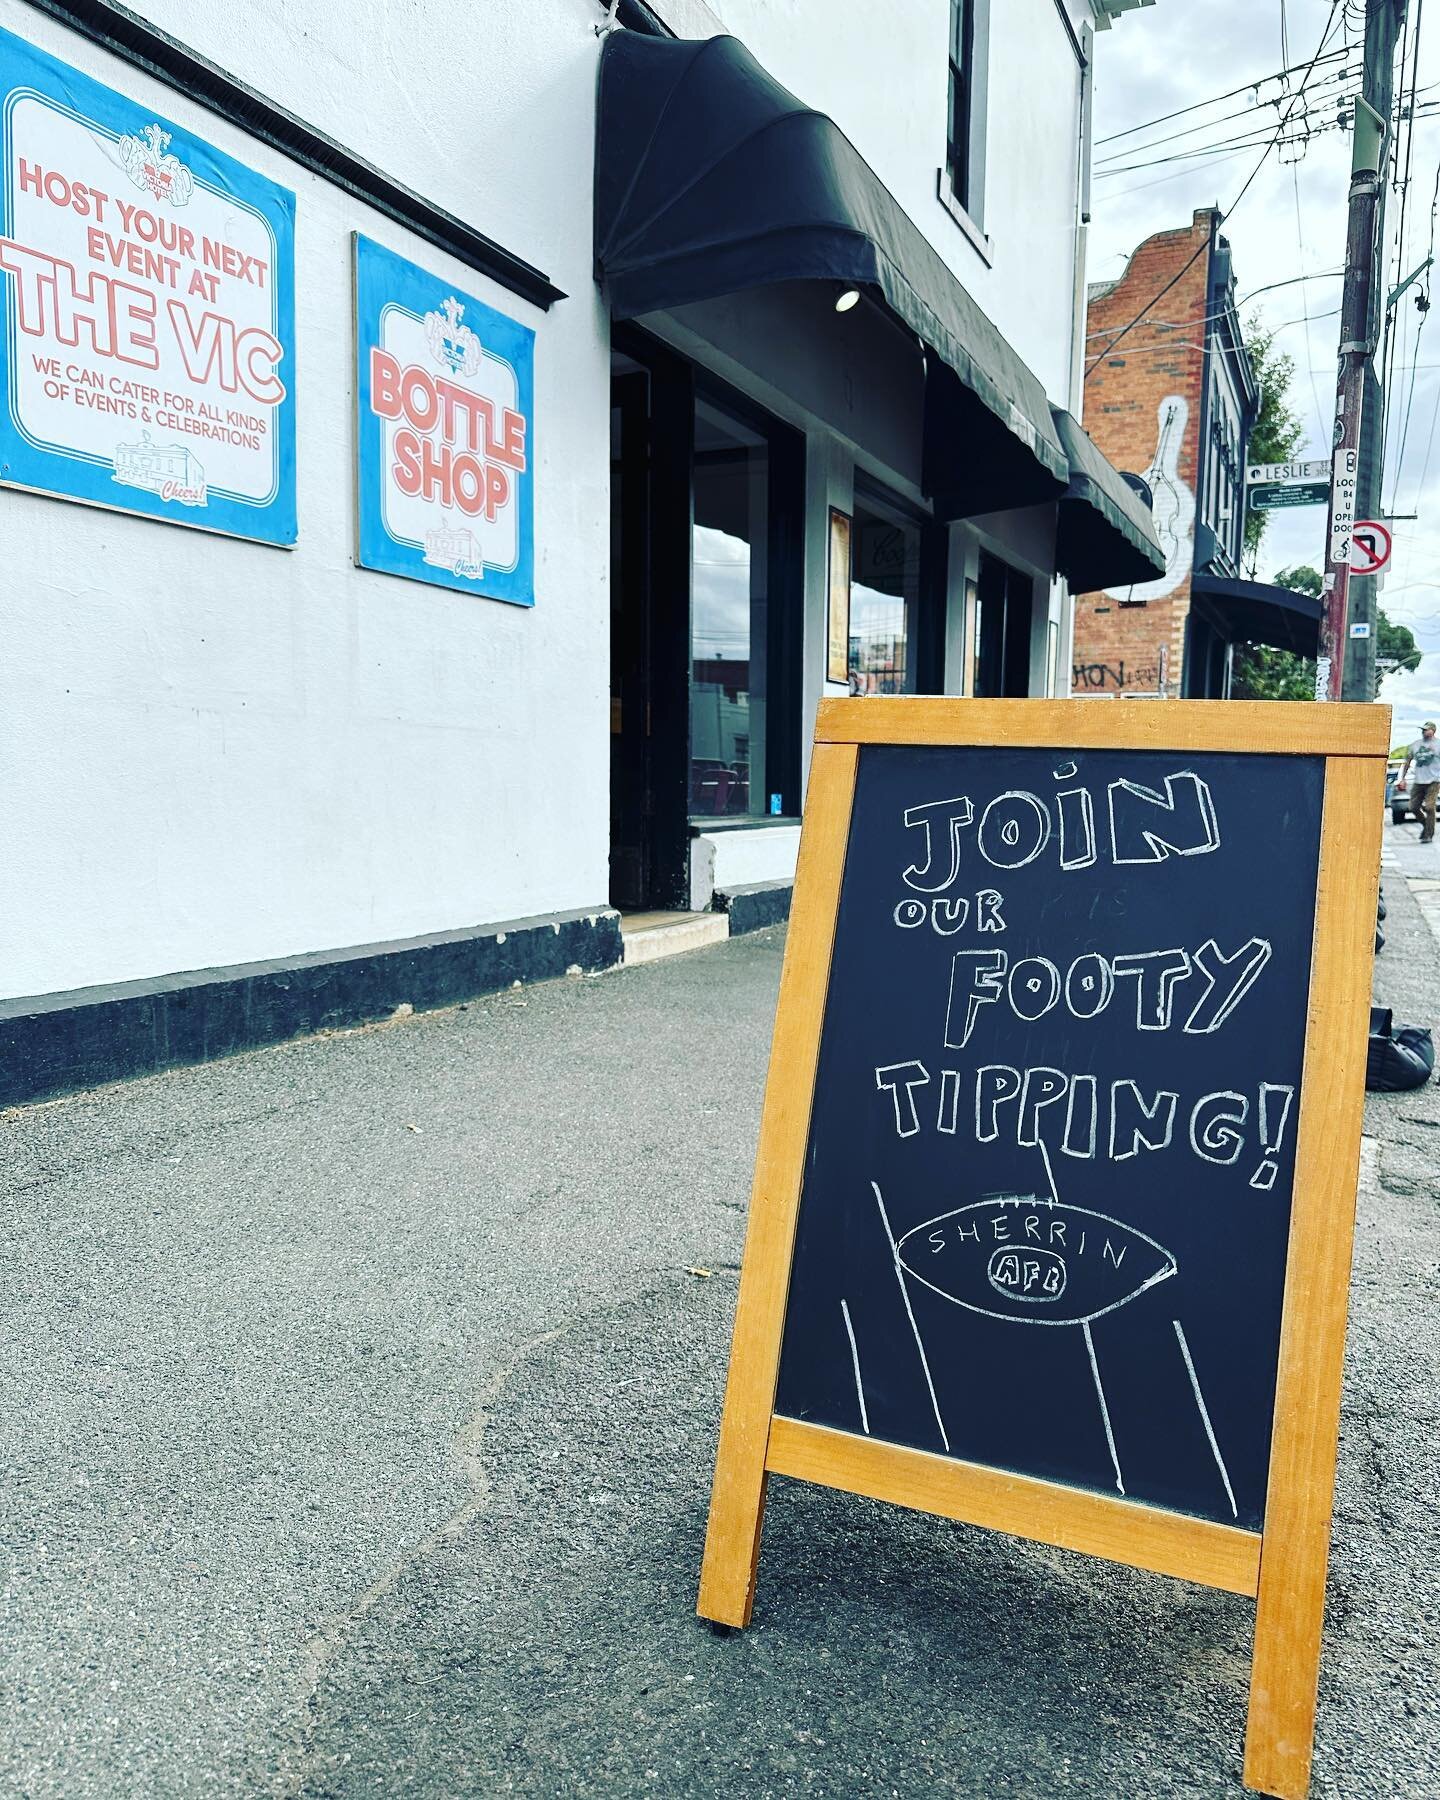 VICTORIA
HOTEL
HOST YOUR NEXT
EVENT AT
THE VIC
WE CAN CATER FOR ALL KINDS
OF EVENTS & CELEBRATIONS
Cheers!
BOTTLE
SHOP
Cheers!
LESLIE ST
LOOK
B4
U
OPEN
DOOR
JOiN
OUR
FOOTY
TIPPING!
SHERRIN
AFL